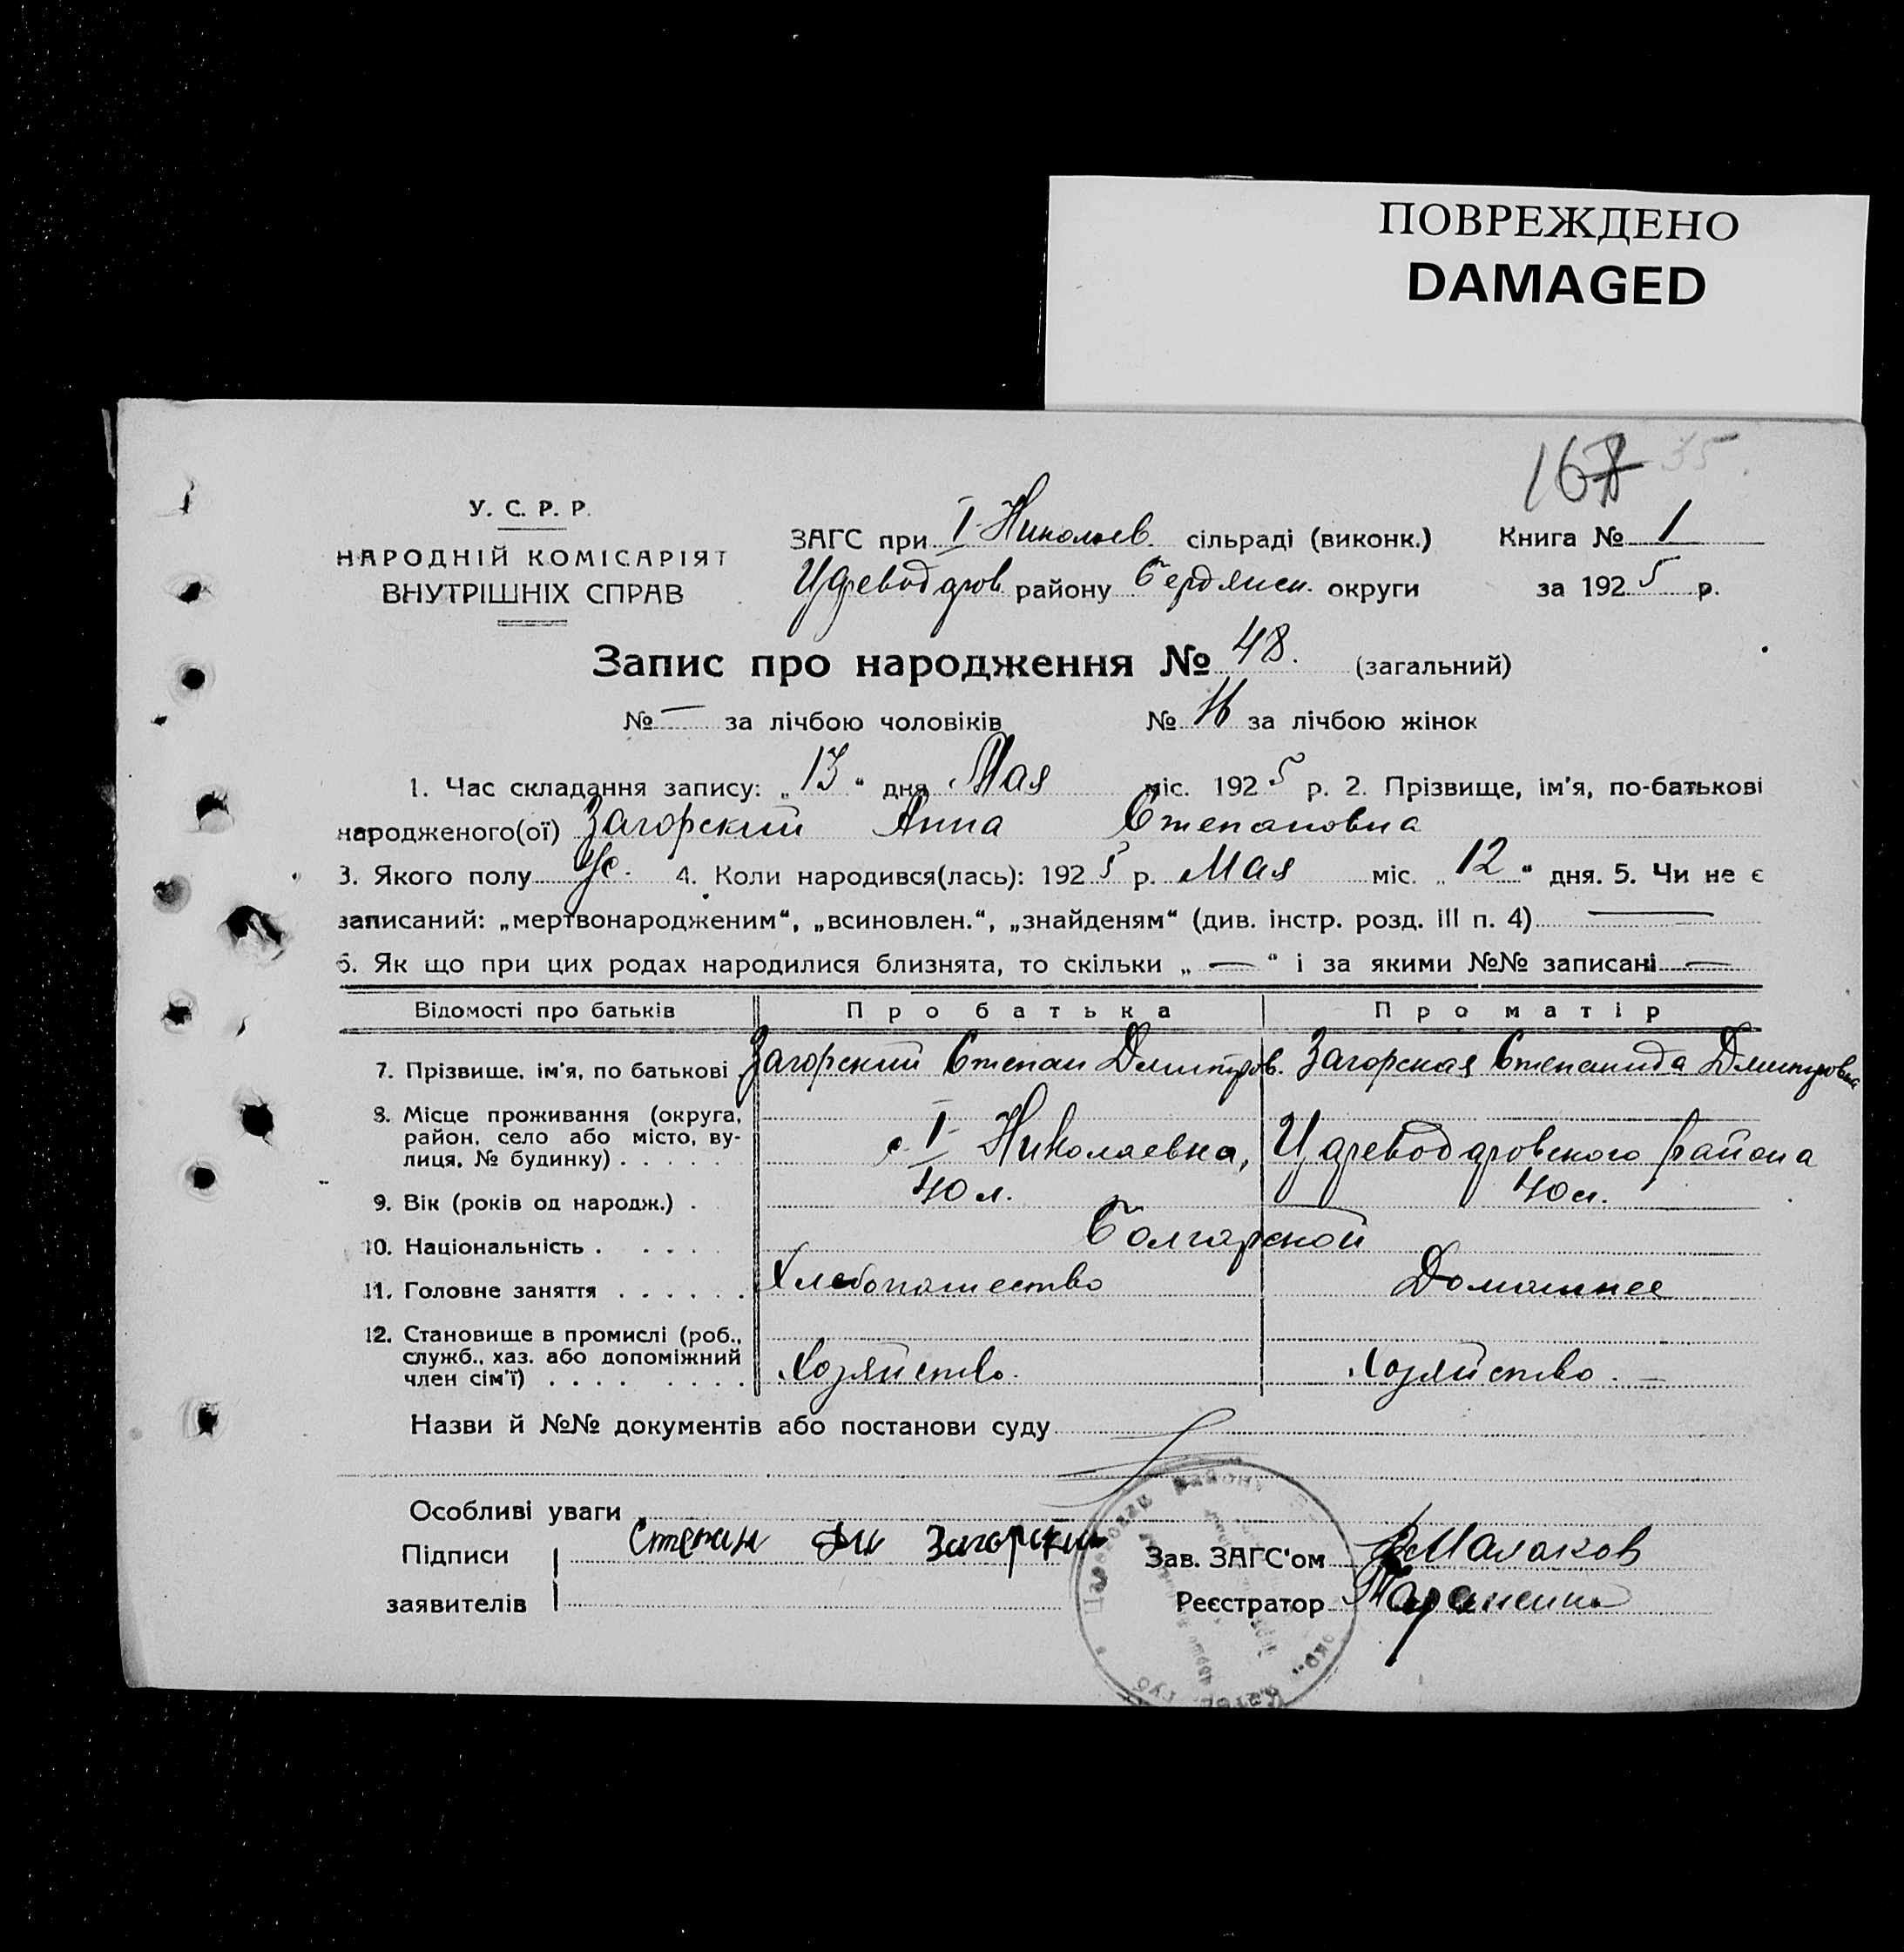 ПОВРЕЖДЕНО
DAMAGED
167 35.
У. С. Р. Р.
НАРОДНІЙ КОМІСАРІЯТ
ВНУТРІШНІХ СПРАВ
ЗАГС при I-Николаев. сільраді (виконк.) Книга № 1
Цареводаров району Бердянск. округи за 1925 р.
Запис про народження № 48. (загальний)
№ — за лічбою чоловіків № за лічбою жінок
1. Час складання запису: „13“ дня Мая міс. 1925 р. 2. Прізвище, ім'я, по-батькові
народженого(ої) Загорский Анна Степановна
3. Якого полу Ж. 4. Коли народився(лась): 1925 р. Мая міс. „12“ дня. 5. Чи не є
записаний: „мертвонародженим“, „всиновлен.“, „знайденям“ (див. інстр. розд. III п. 4) —
6. Як що при цих родах народилися близнята, то скільки „—“ і за якими №№ записані —
Відомості про батьків Про батька Про матір
7. Прізвище, ім'я, по батькові Загорский Степан Дмитров. Загорская Степанида Дмитровна
8. Місце проживання (округа,
район, село або місто, ву-
лиця, № будинку) . . . . . с. I- Николаевка, Цареводаровского района
9. Вік (років од народж.) . 40 л. 40 л.
10. Національність . . . . . Болгарской
11. Головне заняття . . . . . . Хлебопашество Домашнее
12. Становище в промислі (роб.,
служб., хаз. або допоміжний
член сім'ї) . . . . . . . . Хозяйство. Хозяйство. —
Назви й №№ документів або постанови суду
Особливі уваги
Підписи Степан Дм Загорский Зав. ЗАГС'ом Малаков
заявителів Реєстратор Тараненко